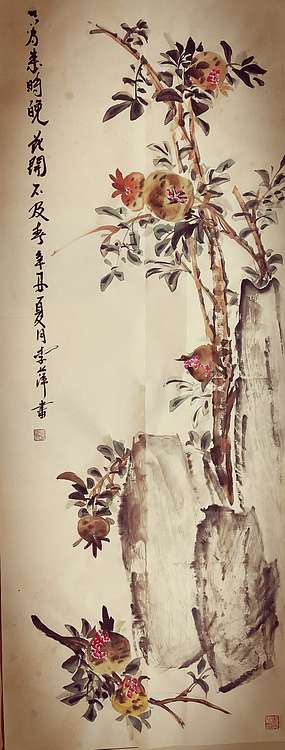 只为来时晚花开不及春辛丑夏月李萍画